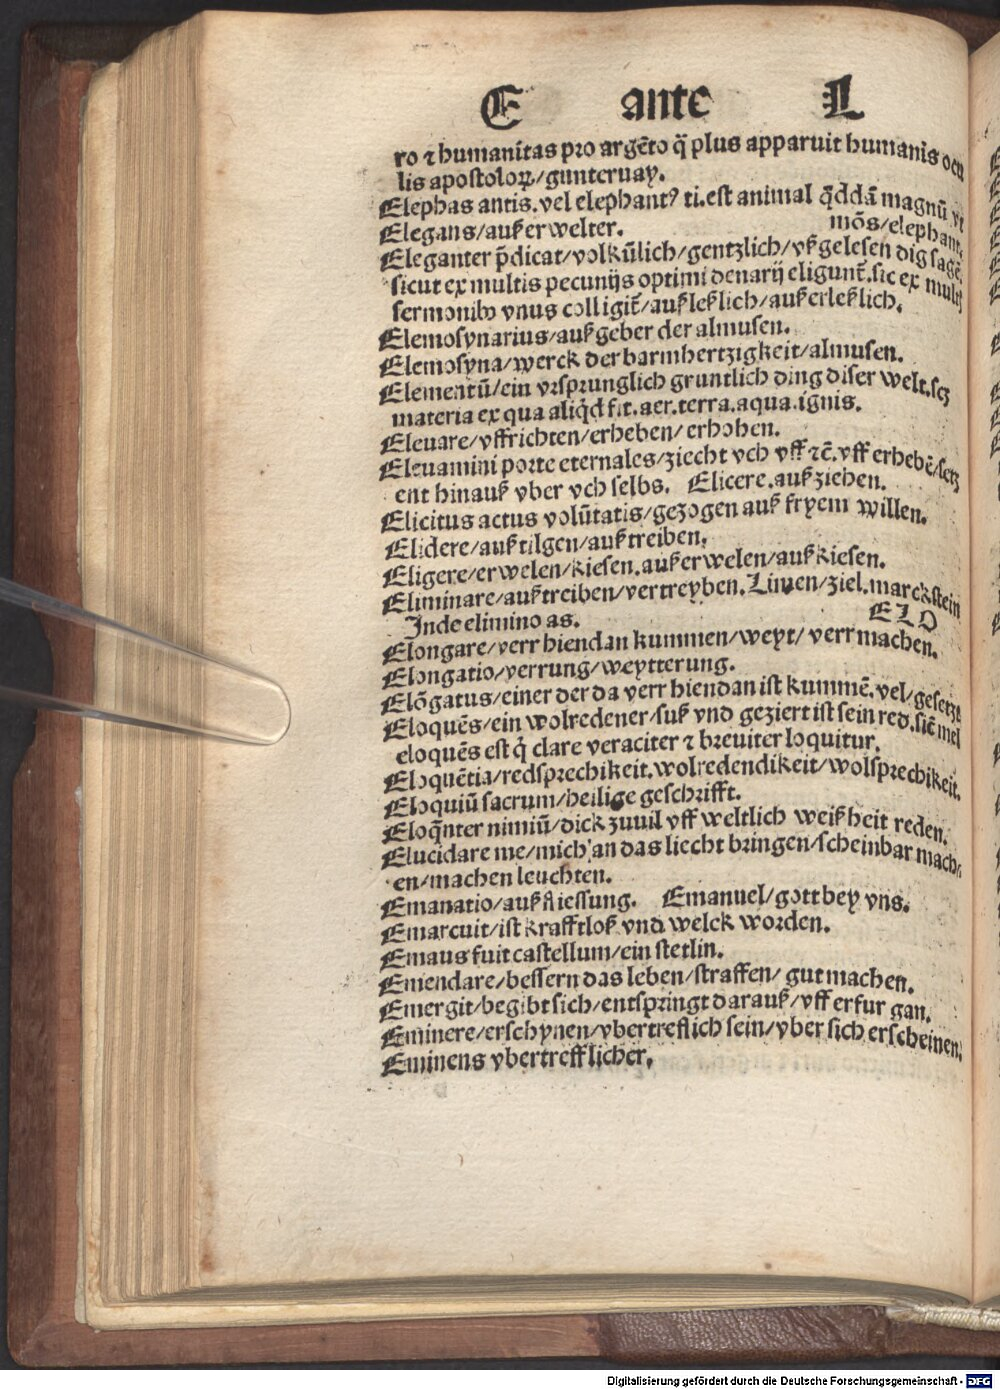 E ante L
ro ⁊ humanitas pro argēto q̄ plus apparuit humanis ocu
lis apostoloꝝ/gunteruay.
Elephas antis.vel elephantꝰ ti.est animal q̄ddā magnū vt
Elegans/auß erwelter. mōs/elephant.
Eleganter p̄dicat/volkūlich/gentzlich/vß gelesen dig sagē.
sicut ex multis pecunijs optimi denarij eligunt̄.sic ex multis
sermonibꝰ vnus colligit̄/außleßlich/außerleßlich.
Elemosynarius/außgeber der almusen.
Elemosyna/werck der barmhertzigkeit/almusen.
Elementū/ein vrsprunglich gruntlich ding diser welt.scꝫ
materia ex qua aliq̇d fit.aer.terra.aqua.ignis.
Eleuare/vffrichten/erheben/erhohen.
Eleuamini porte eternales/ziecht vch vff ⁊c̄.vff erhebē/setz
ent hinauß vber vch selbs. Elicere.außziehen.
Elicitus actus volūtatis/gezogen auß fryem willen.
Elidere/außtilgen/außtreiben.
Eligere/erwelen/kiesen.außerwelen/außkiesen.
Eliminare/außtreiben/vertreyben.Limen/ziel.marckstein
Inde elimino as. ELO
Elongare/verr hiendan kummen/weyt/verr machen.
Elongatio/verrung/weytterung.
Elōgatus/einer der da verr hiendan ist kummē.vel/gesetzt
Eloquēs/ein wolredener/suß vnd geziert ist sein red.sic̄ mel
eloquēs est q̇ clare veraciter ⁊ breuiter loquitur.
Eloquētia/redsprechikeit.wolredendikeit/wolsprechikeit.
Eloquiū sacrum/heilige geschrifft.
Eloq̄nter nimiū/dick zuuil vff weltlich weißheit reden.
Elucidare me/mich an das liecht bringen/scheinbar mach
en/machen leuchten.
Emanatio/außfliessung. Emanuel/gott bey vns.
Emarcuit/ist krafftloß vnd welck worden.
Emaus fuit castellum/ein stetlin.
Emendare/bessern das leben/straffen/gut machen.
Emergit/begibt sich/entspringt darauß/vff erfur gan.
Eminere/erschynen/vbertreflich sein/vber sich erscheinen.
Eminens vbertrefflicher.
Digitalisierung gefördert durch die Deutsche Forschungsgemeinschaft - DFG